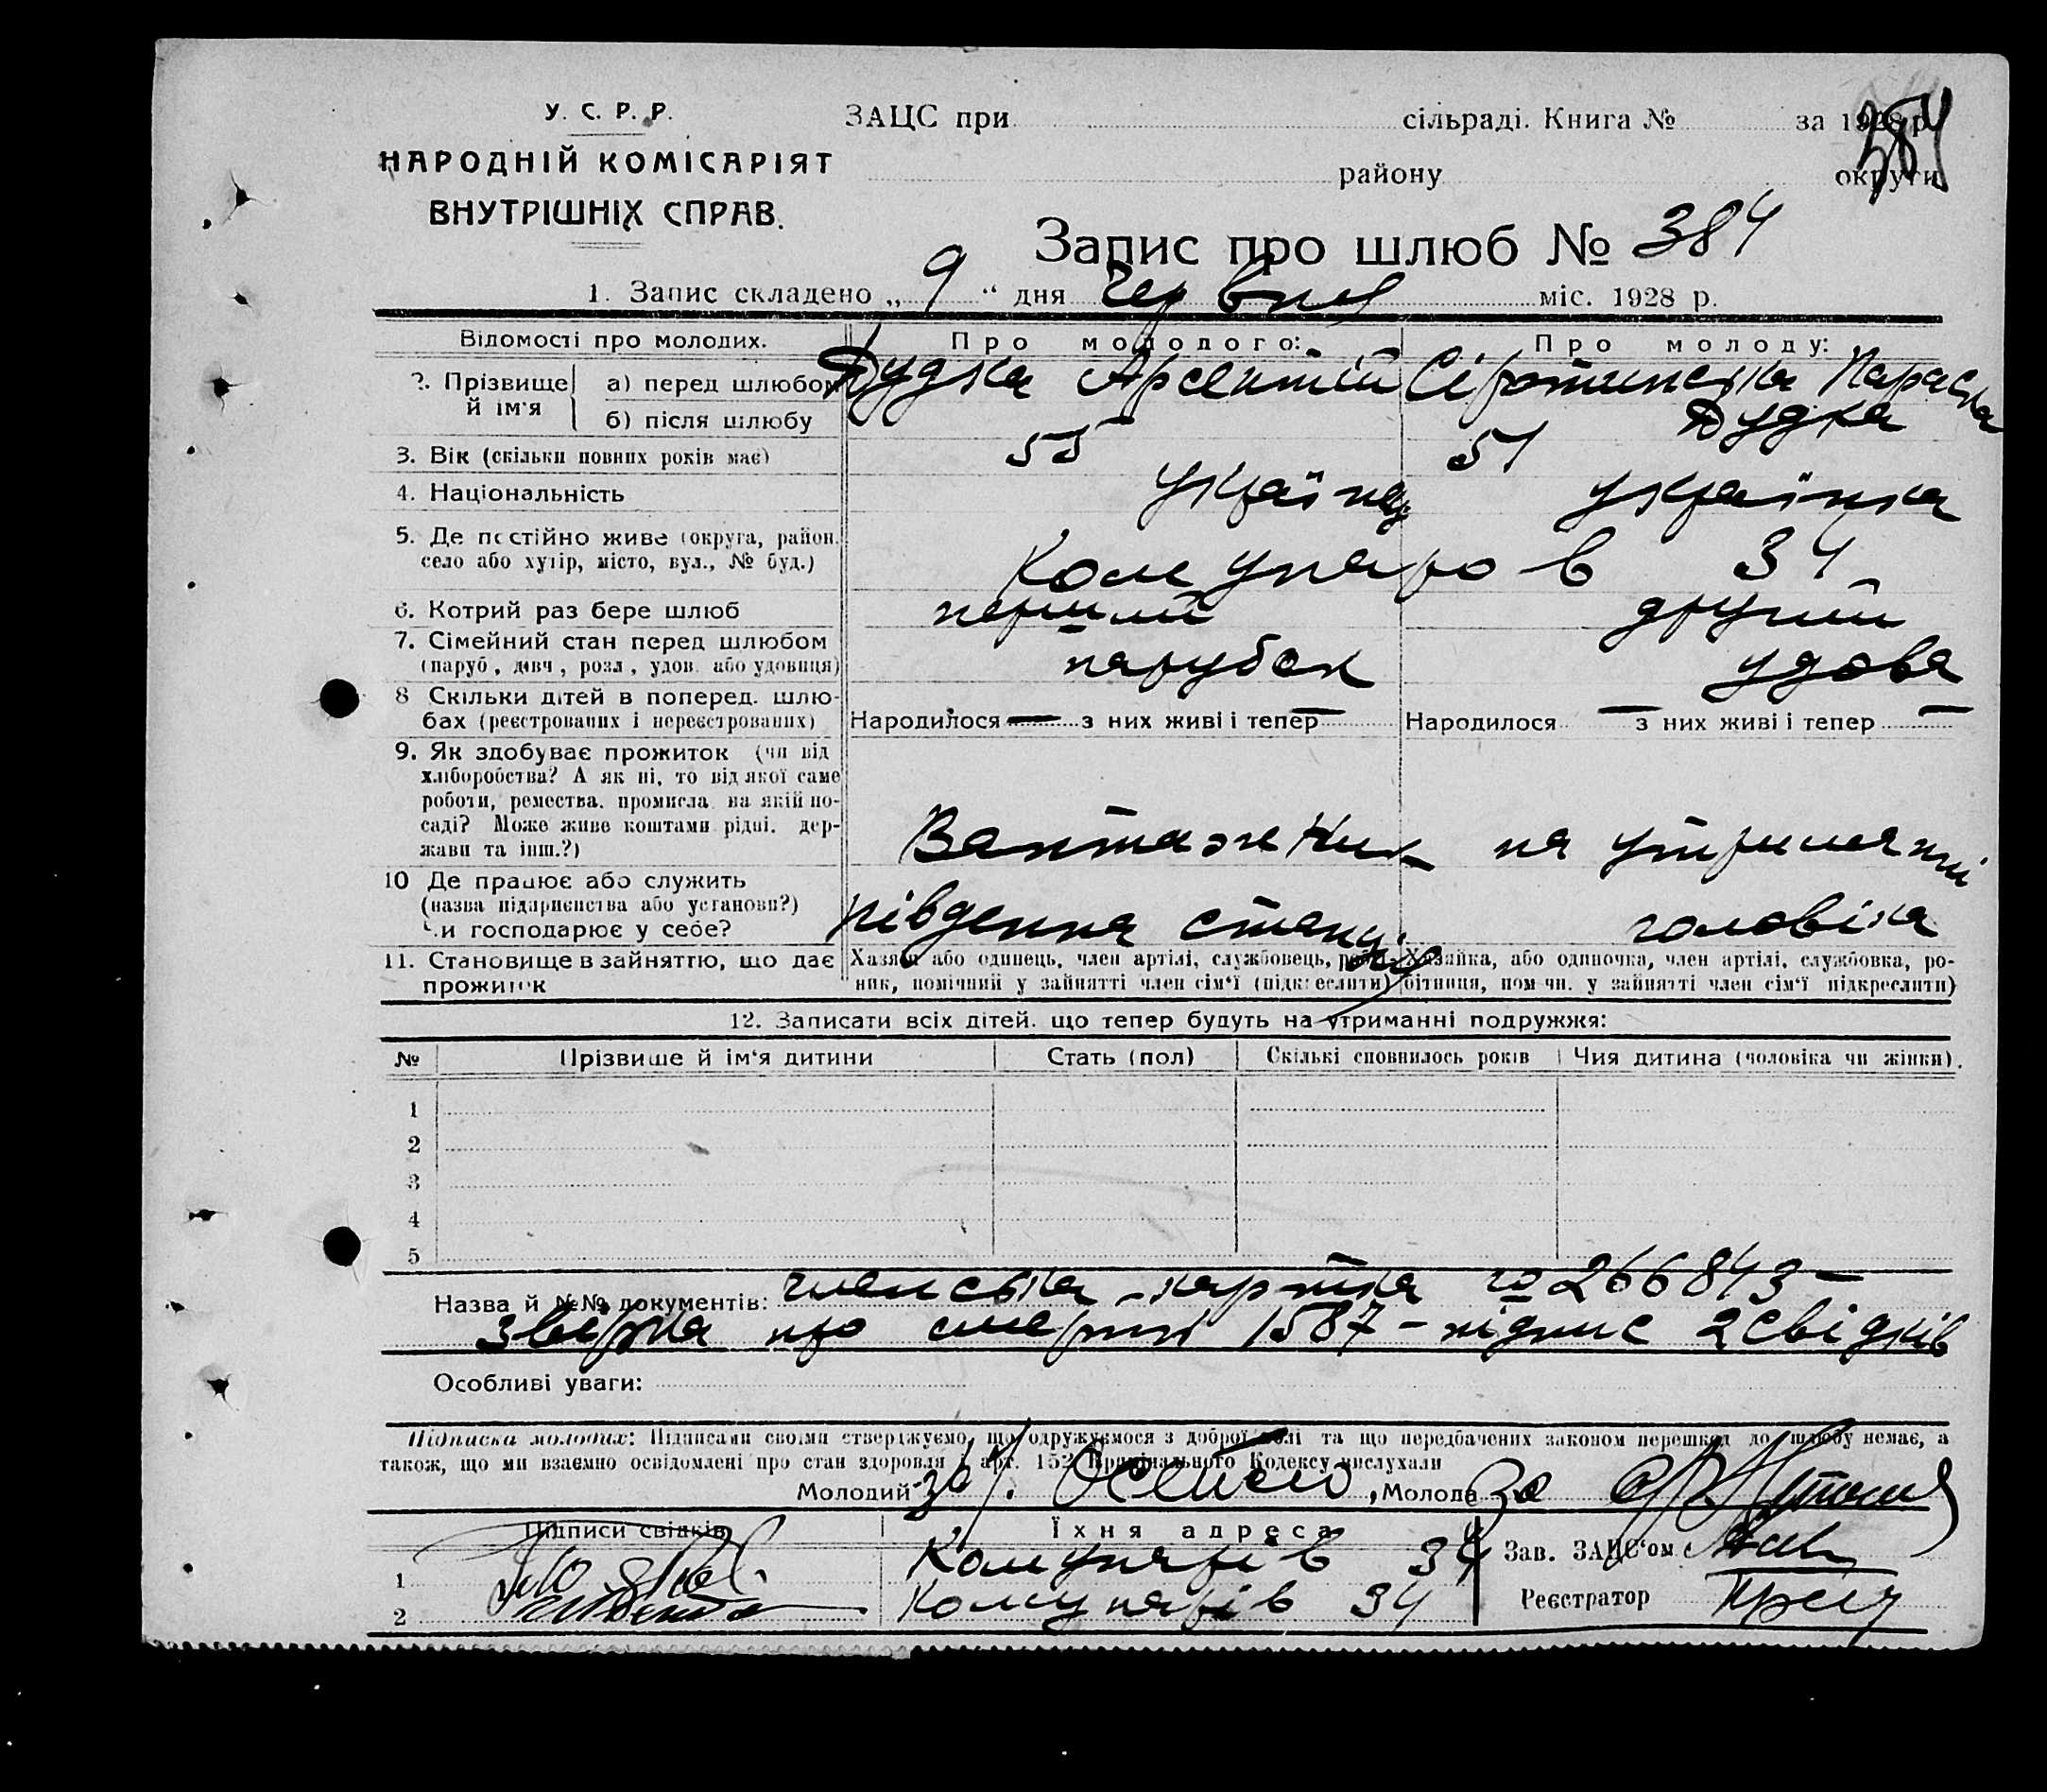 384
У. С. Р. Р.
НАРОДНІЙ КОМІСАРІЯТ
ВНУТРІШНІХ СПРАВ.
ЗАЦС при сільраді. Книга № за 1928 р.
району округи
Запис про шлюб № 384
1. Запис складено „ 9 “ дня Червня міс. 1928 р.
Відомості про молодих. Про молодого: Про молоду:
2. Прізвище й ім'я а) перед шлюбом Дудка Арсентій Сіротинська Параска
б) після шлюбу Дудка
3. Вік (скільки повних років має) 55 51
4. Національність українец українка
5. Де постійно живе (округа, район,
село або хутір, місто, вул., № буд.) Комунарів 34
6. Котрий раз бере шлюб перший другий
7. Сімейний стан перед шлюбом
(паруб., дівч., розл., удов. або удовиця) парубок удова
8 Скільки дітей в поперед. шлю-
бах (реєстрованих і нереєстрованих) Народилося — з них живі і тепер — Народилося — з них живі і тепер —
9. Як здобуває прожиток (чи від
хліборобства? А як ні, то від якої саме
роботи, ремества, промисла, на якій по-
саді? Може живе коштами рідні, дер-
жави та інш.?) Вантажник на утриманні
10 Де працює або служить
(назва підприємства або установи?)
Чи господарює у себе? південна станція чоловіка
11. Становище в зайняттю, що дає Хазяїн або одинець, член артілі, службовець, робіт- Хазяйка, або одиночка, член артілі, службовка, ро-
прожиток ник, помічний у зайнятті член сім'ї (підкреслити) бітниця, помічн. у зайнятті член сім'ї підкреслити)
12. Записати всіх дітей, що тепер будуть на утриманні подружжя:
№ Прізвище й ім'я дитини Стать (пол) Скількі сповнилось років Чия дитина (чоловіка чи жінки).
1
2
3
4
5
Назва й №№ документів: членська картка № 266843 —
звірка про смерть 1587 — підпис 2 свідків
Особливі уваги:
Підписка молодих: Підписами своїми стверджуємо, що одружуємося з доброї волі та що передбачених законом перешкод до шлюбу немає, а
також, що ми взаємно освідомлені про стан здоровля і арт. 152 Кримінального Кодексу вислухали
Молодий , Молода за
Підписи свідків Їхня адреса Зав. ЗАЦС'ом
1 Комунарів 34
2 Комунарів 34 Реєстратор